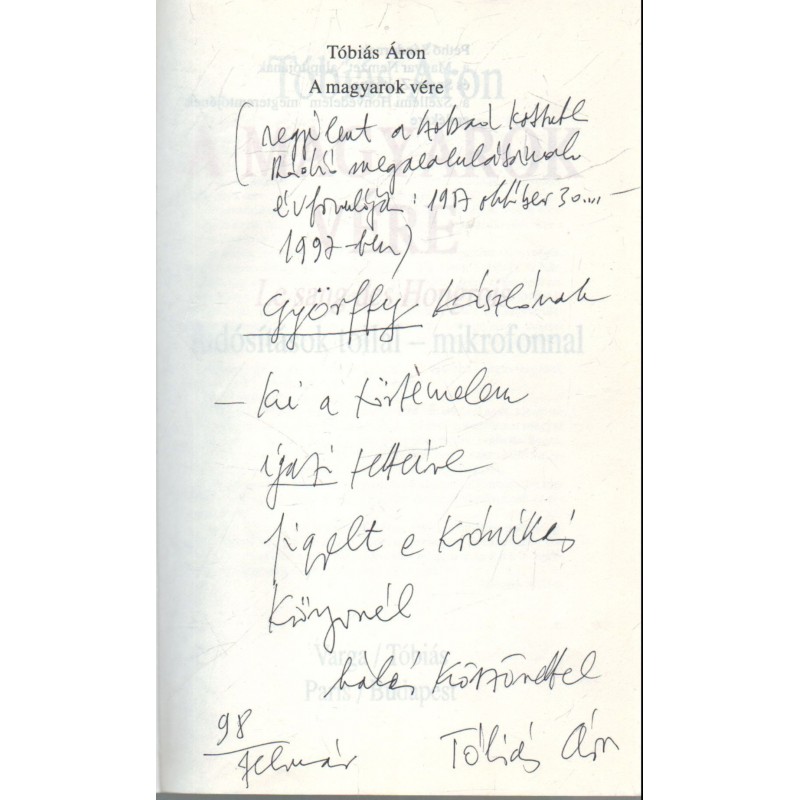 Tóbiás Áron
A magyarok vére
(megjelent a szabad Kossuth
Rádió megalakulásának
évfordulóján: 1957 október 30....–
1997-ben)
Györffy Lászlónak
– ki a történelem
igazi tetteire
figyelt e krónikás
könyvnél
hálás köszönettel
98
február
Tóbiás Áron